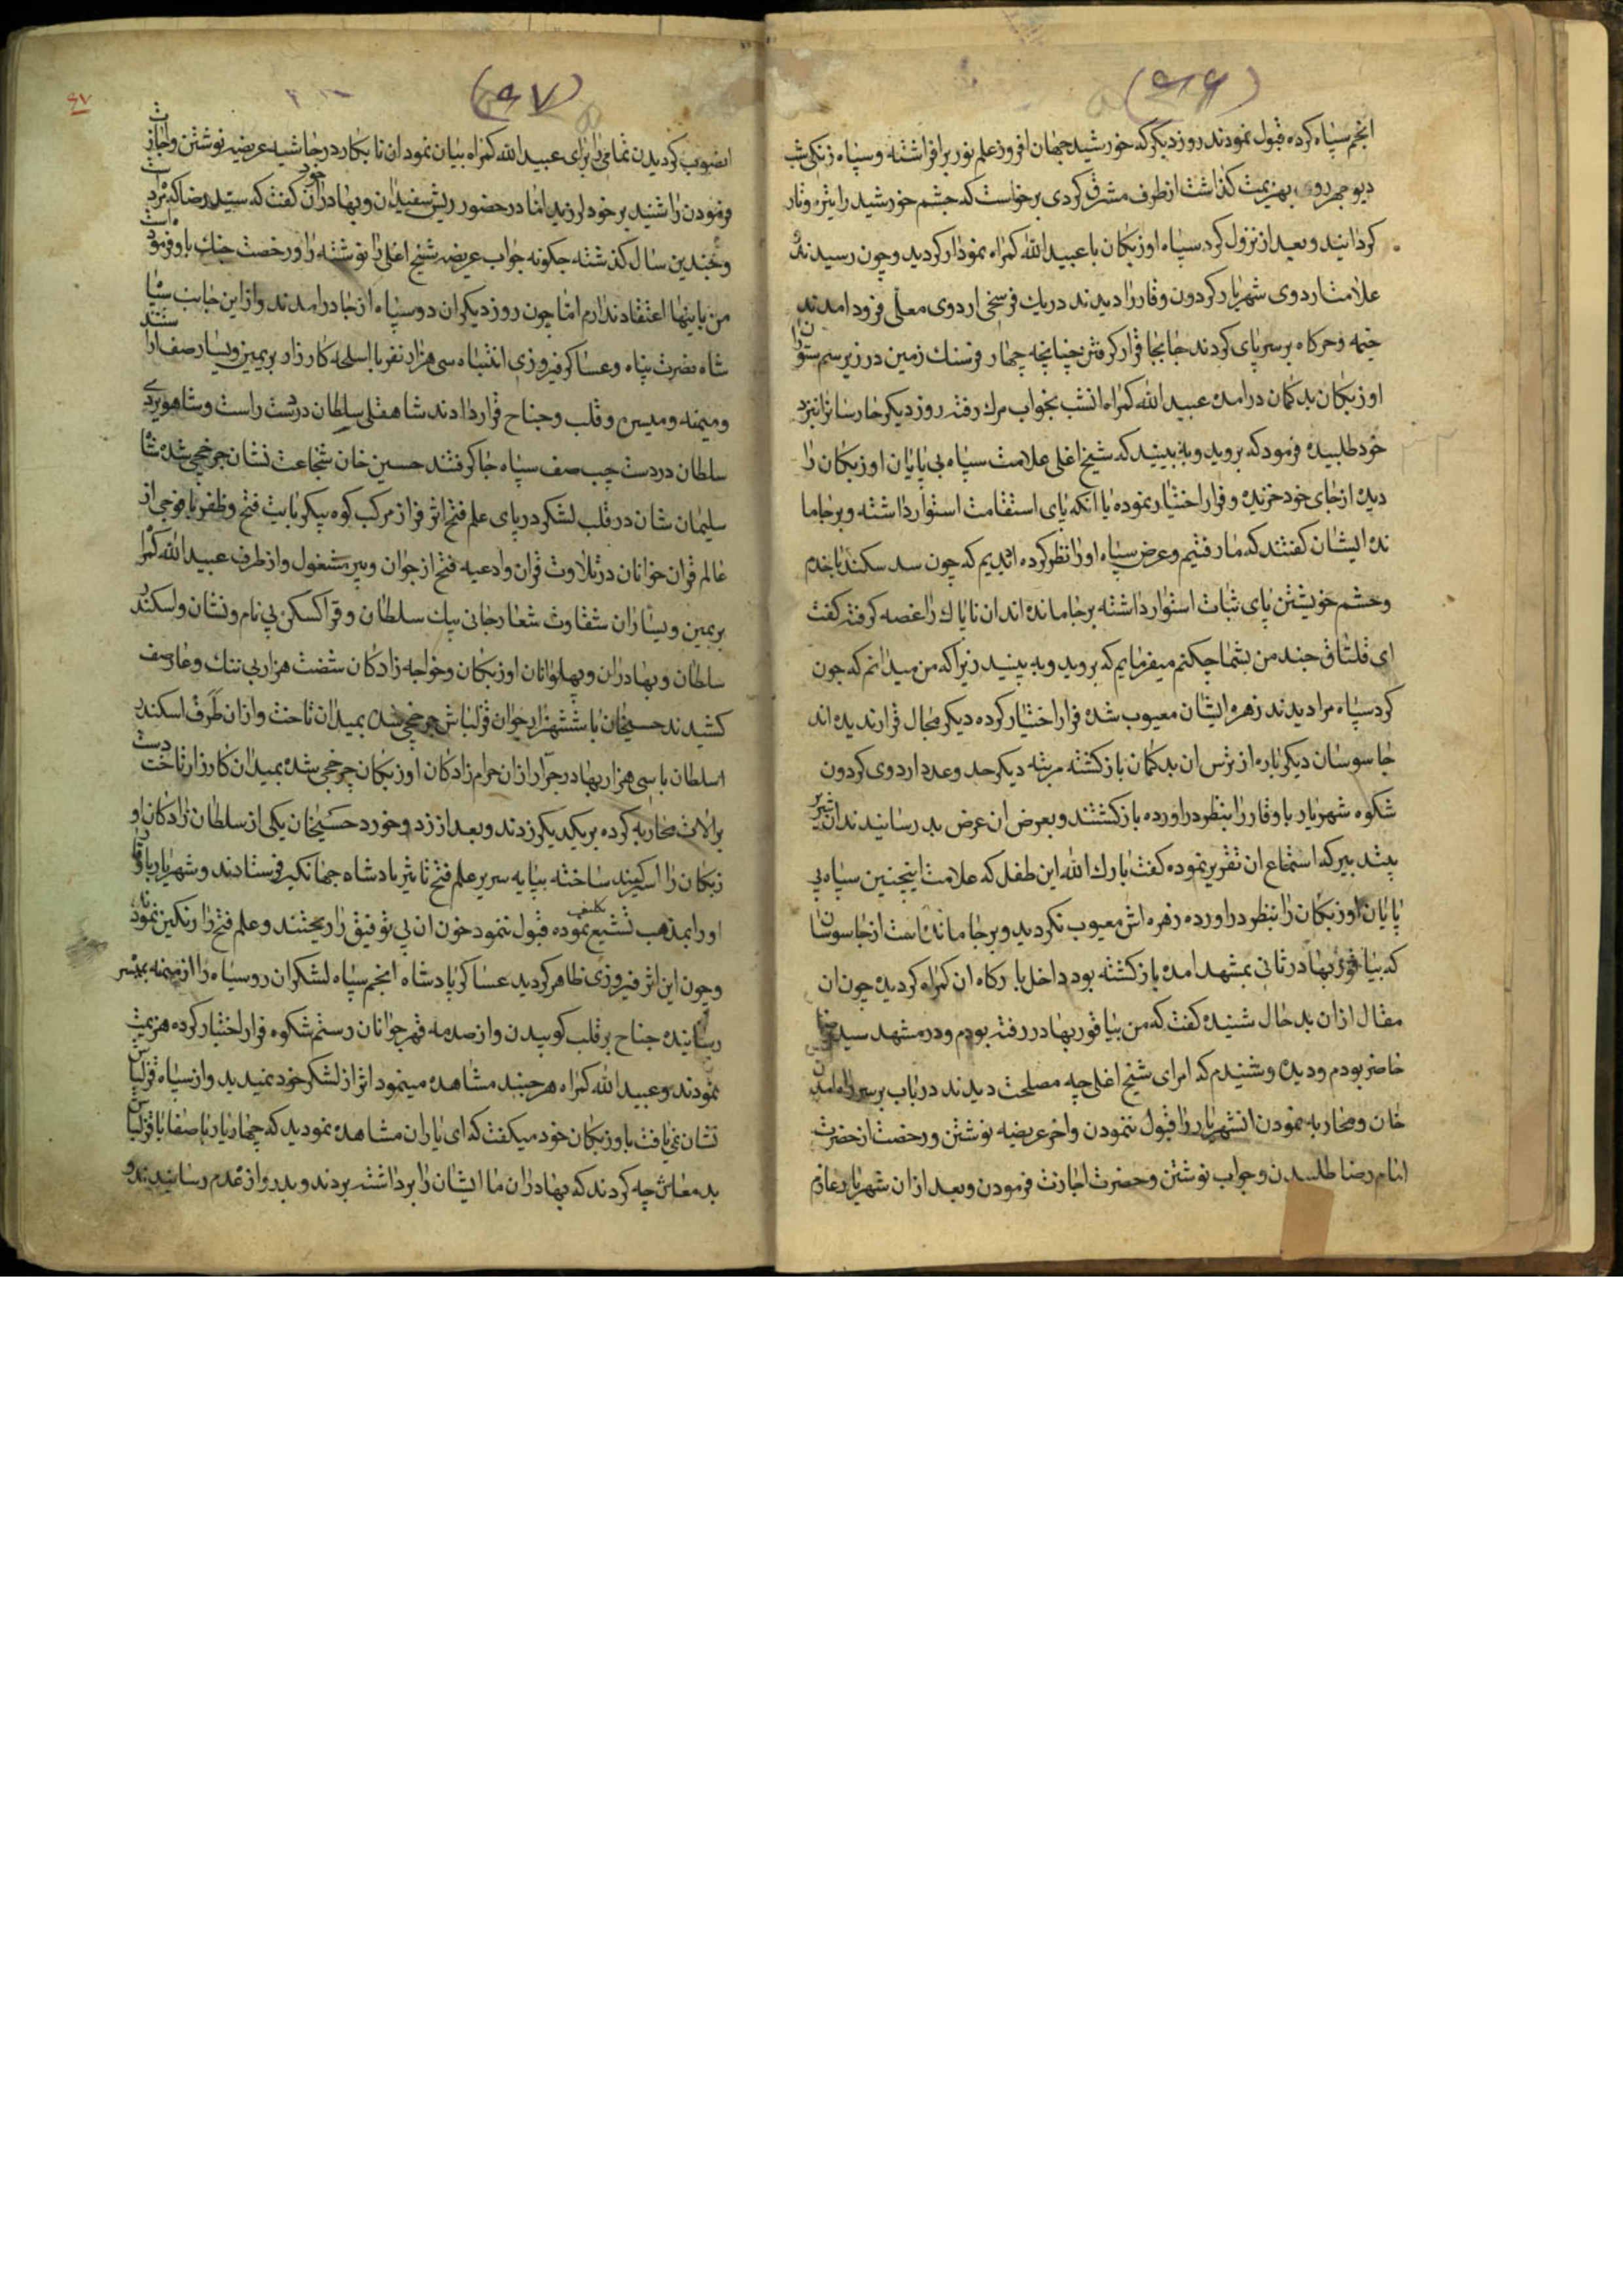 (۹۶)
انجم سپاه کرده قبول نمودند روز دیکر که خورشید جهان افروز علم نور بر افراشته و سپاه زنکی شب
دیو چهر روی بهزیمت کذاشت از طرف مشرق کردی برخواست که چشم خورشید را تیره و تار
کردانید و بعد از نزول کرد سپاه اوزبکان با عبیدالله کمراه نمودار کردید و چون رسیدند و
علامت اردوی شهریار کردون وقار را دیدند در یك فرسخی اردوی معلی فرود امدند
خیمه و خرکاه بر سر پای کردند جا بجا قرار کرفتن چنانچه چهار فرسنك زمین در زیر سم ستوران
اوزبکان بد کمان در امده عبیدالله کمراه انشب بخواب مرك رفته روز دیکر جارسانرا نزد
خود طلبیده فرمود که بروید و به بینید که شیخ اغلی علامت سپاه بی پایان اوزبکان را
دیده از جای خود خزیده و فرار اختیار نموده یا انکه پای استقامت استوار داشته و بر جا ما
نده ایشان کفتند که ما رفتیم و عرض سپاه او را نظر کرده اندیم که چون سد سکندر با خدم
و حشم خویشتن پای ثبات استوار داشته بر جا مانده اند ان ناپاك را غصه کرفته کفت
ای قلتاق چند من بشما چکنم میفرمایم که بروید و به بینید زیرا که من میدانم که چون
کرد سپاه مرا دیدند زهره ایشان معیوب شده فرار اختیار کرده دیکر مجال قرار ندیده اند
جاسوسان دیکر باره از ترس ان بد کمان باز کشته مرتبه دیکر حد و عدد اردوی کردون
شکوه شهریار با وقار را بنظر در اورده باز کشتند و بعرض ان عرض بد رسانیدند ان شریر
بیتدبیر که استماع ان تقریر نموده کفت بارك الله این طفل که علامت اینچنین سپاه بی
پایان اوزبکان را بنظر در اورده زهره اش معیوب نکردید و بر جا مانده است از جاسوسان
که بیاقور بهادر ثانی بمشهد امده باز کشته بود داخل بارکاه ان کمراه کردیده چون ان
مقال از ان بد حال شنیده کفت که من بیاقور بهادر رفته بودم و در مشهد سید رضا
حاضر بودم و دیده و شنیدم که امرای شیخ اغلی چه مصلحت دیدند در باب بر سر راه امدن
خان و محاربه نمودن انشهریار را قبول ننمودن و اخر عریضه نوشتن و رخصت از حضرت
امام رضا طلبیدن و جواب نوشتن و حضرت اجازت فرمودن و بعد از ان شهریار عازم
(۹۷)
۹۷
انصوب کردیدن تمامی را برای عبیدالله کمراه بیان نمود ان نابکار در حاشیه عریضه نوشتن و اجازت
فرمودن را شنید بر خود لرزید اما در حضور ریش سفیدان و بهادران خود کفت که سید رضا که مرده است
و چندین سال کذشته چکونه جواب عریضه شیخ اغلی را نوشته و را و رخصت جنك باو فرموده است
من باینها اعتقاد ندارم اما چون روز دیکر ان دو سپاه از جا در امدند و از این جانب سپاه
شاه نصرت پناه و عساکر فیروزی انتباه سی هزار نفر با اسلحه کارزار بر یمین و یسار صف ارا ستند
و میمنه و میسره و قلب و جناح قرار دادند شاهقلی سلطان در دست راست و شاهویردی
سلطان در دست چپ صف سپاه جا کرفتند حسین خان شجاعت نشان چرخچی شده شاه
سلیمان شان در قلب لشکر در پای علم فتح اثر فراز مرکب کوه پیکر بابیت فتح و ظفر با فوجی از
عالم قران خوانان در تلاوت قران و ادعیه فتح از جوان و پیر مشغول و از طرف عبیدالله کمراه
بر یمین و یساران شقاوت شعار جانی بیك سلطان و قراکسکن بی نام و نشان و اسکندر
سلطان و بهادران و پهلوانان اوزبکان و خواجه زادکان شصت هزار بی ننك و عار صف
کشیدند حسیخان با ششهزار جوان قزلباش چرخچی شده بمیدان تاخت و از ان طرف اسکندر
سلطان با سی هزار بهادر جرار از ان حرام زادکان اوزبکان چرخچی شده بمیدان کارزار تاخت دست
بر الات محاربه کرده بر یکدیکر زدند و بعد از زد و خورد حسیخان یکی از سلطان زادکان او
زبکان را اسکیند ساخته بپایه سریر علم فتح تاثیر پادشاه جهانکیر فرستادند و شهریار با وقار
او را بمذهب تشیع تکلیف نموده قبول ننمود خون ان بی توفیق را ریختند و علم فتح را رنکین نمودند
و چون این اثر فیروزی ظاهر کردید عساکر پادشاه انجم سپاه لشکران رو سیاه را از میمنه بمیسر
رسانیده جناح بر قلب کوبیدن و از صدمه قهر جوانان رستم شکوه فرار اختیار کرده هزیمت
نمودند و عبیدالله کمراه هر چند مشاهده مینمود اثر از لشکر خود نمیدید و از سپاه قزلباش
نشان نمییافت باوزبکان خود میکفت که ای یاران مشاهده نمودید که چهار یار باصفا با قزلباش
بد معاش چه کردند که بهادران ما ایشان را برداشته بردند و بدروازه عدم رسانیدند و